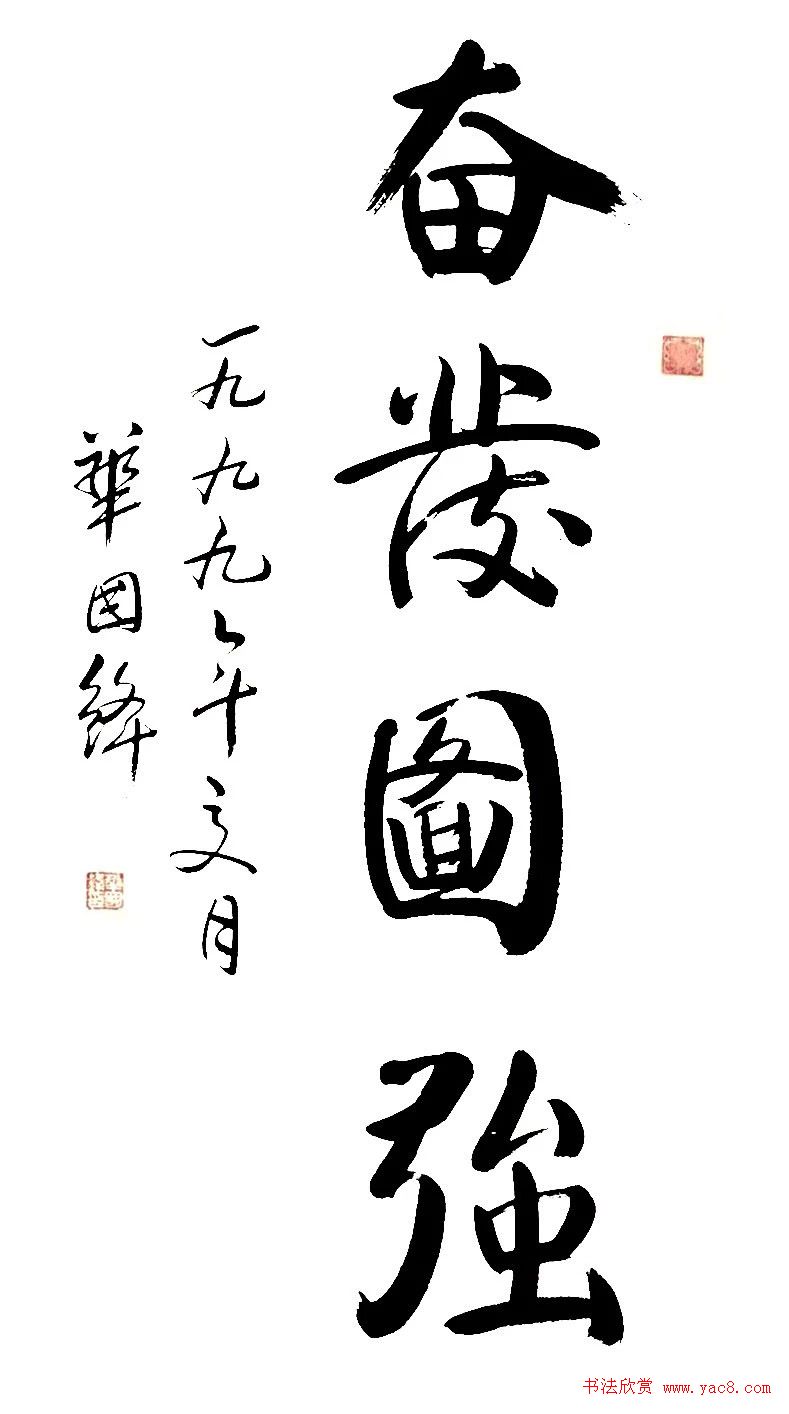 奋發圖強
一九九九年夏月
華國鋒
书法欣赏 www.yac8.com